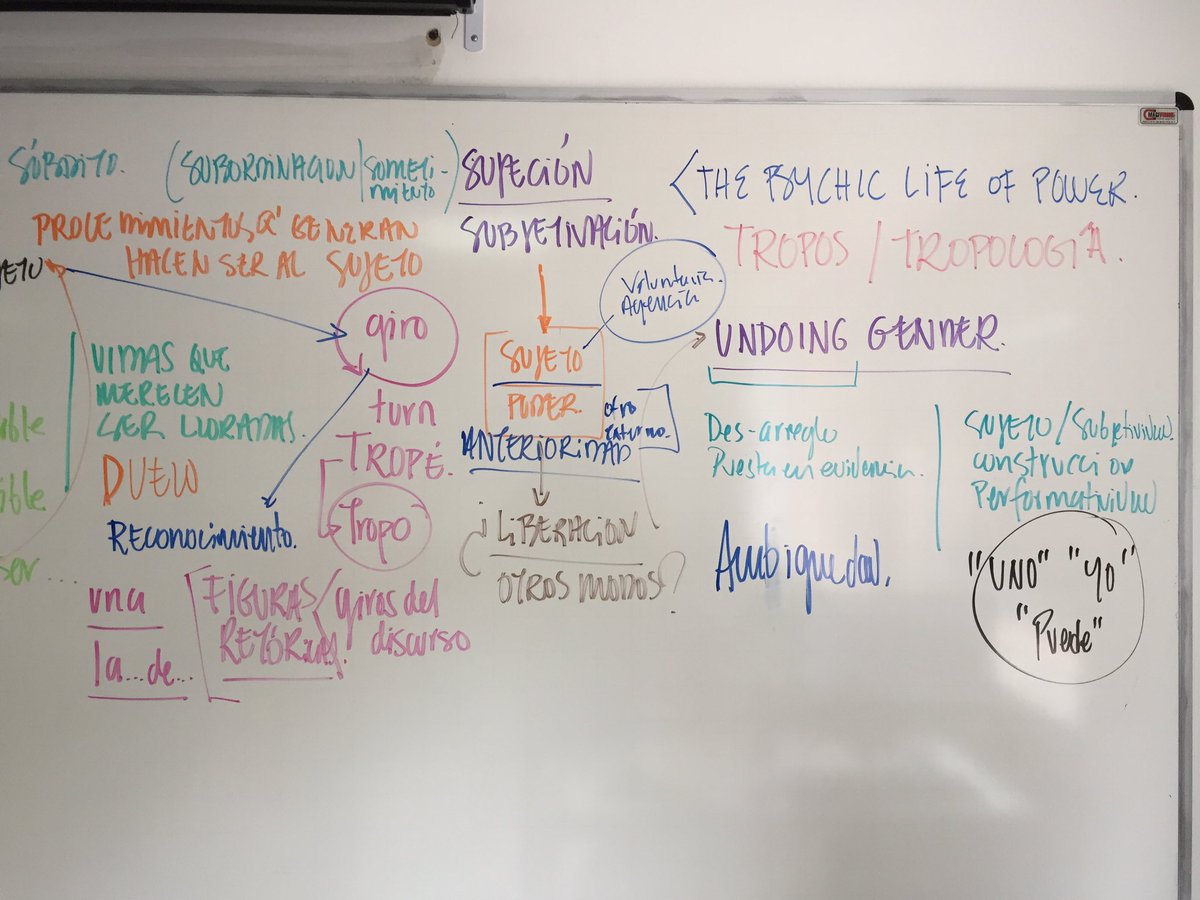 SÚBDITO. (SUBORDINACION/SOMETI-
MIENTO)
SUJECIÓN
<THE PSYCHIC LIFE OF POWER.
PROCEDIMIENTOS Q' GENERAN
HACEN SER AL SUJETO
SUBJETIVACIÓN.
TROPOS / TROPOLOGÍA.
giro
turn
TROPÉ.
Tropo
VIDAS QUE
MERECEN
SER LLORADAS.
DUELO
RECONOCIMIENTO.
ser...
una
la...de...
FIGURAS/
RETÓRICAS.
giros del
discurso
Voluntaria.
Agencia
SUJETO
PODER.
ANTERIORIDAD
otro
externo.
¿LIBERACION
OTROS MODOS?
UNDOING GENDER.
Des-arreglo
Puesta en evidencia.
SUJETO/Subjetividad.
construccion
Performatividad
Ambiguedad.
"UNO" "YO"
"Puede"